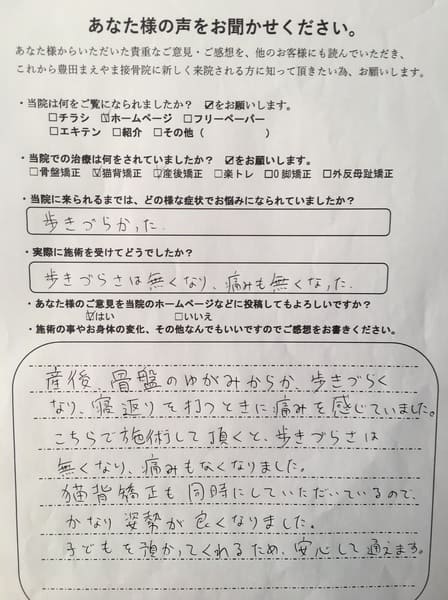 あなた様の声をお聞かせください。
あなた様からいただいた貴重なご意見・ご感想を、他のお客様にも読んでいただき、
これから豊田まえやま接骨院に新しく来院される方に知って頂きたい為、お願いします。
・当院は何をご覧になられましたか？ ☑をお願いします。
□チラシ ☑ホームページ □フリーペーパー
□エキテン □紹介 □その他（ ）
・当院での治療は何をされていましたか？ ☑をお願いします。
□骨盤矯正 ☑猫背矯正 ☑産後矯正 □楽トレ □O脚矯正 □外反母趾矯正
・当院に来られるまでは、どの様な症状でお悩みになられていましたか？
歩きづらかった.
・実際に施術を受けてどうでしたか？
歩きづらさは無くなり、痛みも無くなった.
・あなた様のご意見を当院のホームページなどに投稿してもよろしいですか？
☑はい □いいえ
・施術の事やお身体の変化、その他なんでもいいですのでご感想をお書きください。
産後、骨盤のゆがみからか、歩きづらく
なり、寝返りを打つときに痛みを感じていました。
こちらで施術して頂くと、歩きづらさは
無くなり、痛みもなくなりました。
猫背矯正も同時にしていただいているので、
かなり姿勢が良くなりました。
子どもを預かってくれるため、安心して通えます。